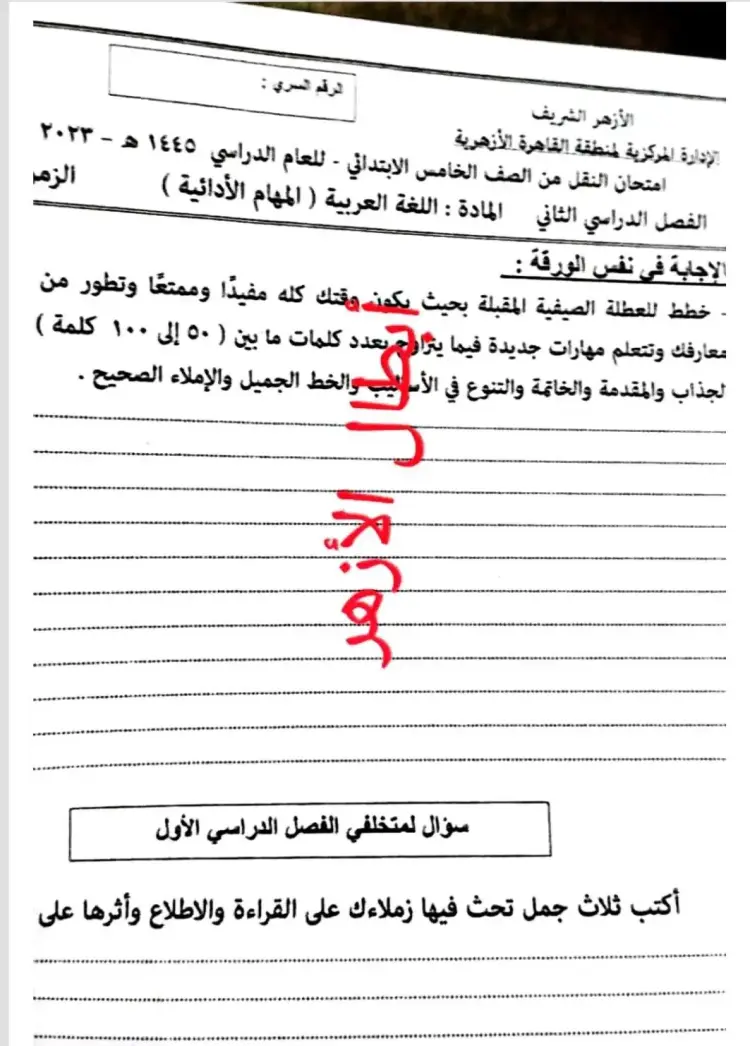 الرقم السري :
الأزهر الشريف
الإدارة المركزية لمنطقة القاهرة الأزهرية
امتحان النقل من الصف الخامس الابتدائي - للعام الدراسي ١٤٤٥ هـ - ٢٠٢٣
الفصل الدراسي الثاني المادة : اللغة العربية ( المهام الأدائية ) الزمن
الإجابة في نفس الورقة :
- خطط للعطلة الصيفية المقبلة بحيث يكون وقتك كله مفيدًا وممتعًا وتطور من
معارفك وتتعلم مهارات جديدة فيما يتراوح بعدد كلمات ما بين ( ٥٠ إلى ١٠٠ كلمة )
لجذاب والمقدمة والخاتمة والتنوع في الأساليب والخط الجميل والإملاء الصحيح .
أبطال الأزهر
سؤال لمتخلفي الفصل الدراسي الأول
أكتب ثلاث جمل تحث فيها زملاءك على القراءة والاطلاع وأثرها على